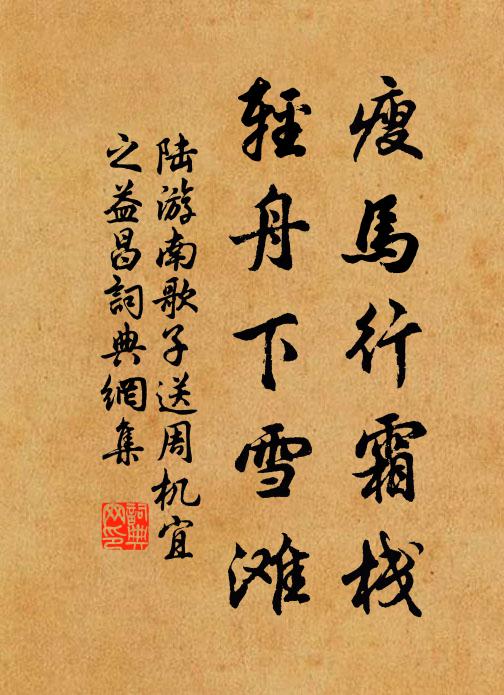 瘦馬行霜栈
輕舟下雪滩
陆游南歌子送周机宜
之益昌詞典網集
詞典
网印